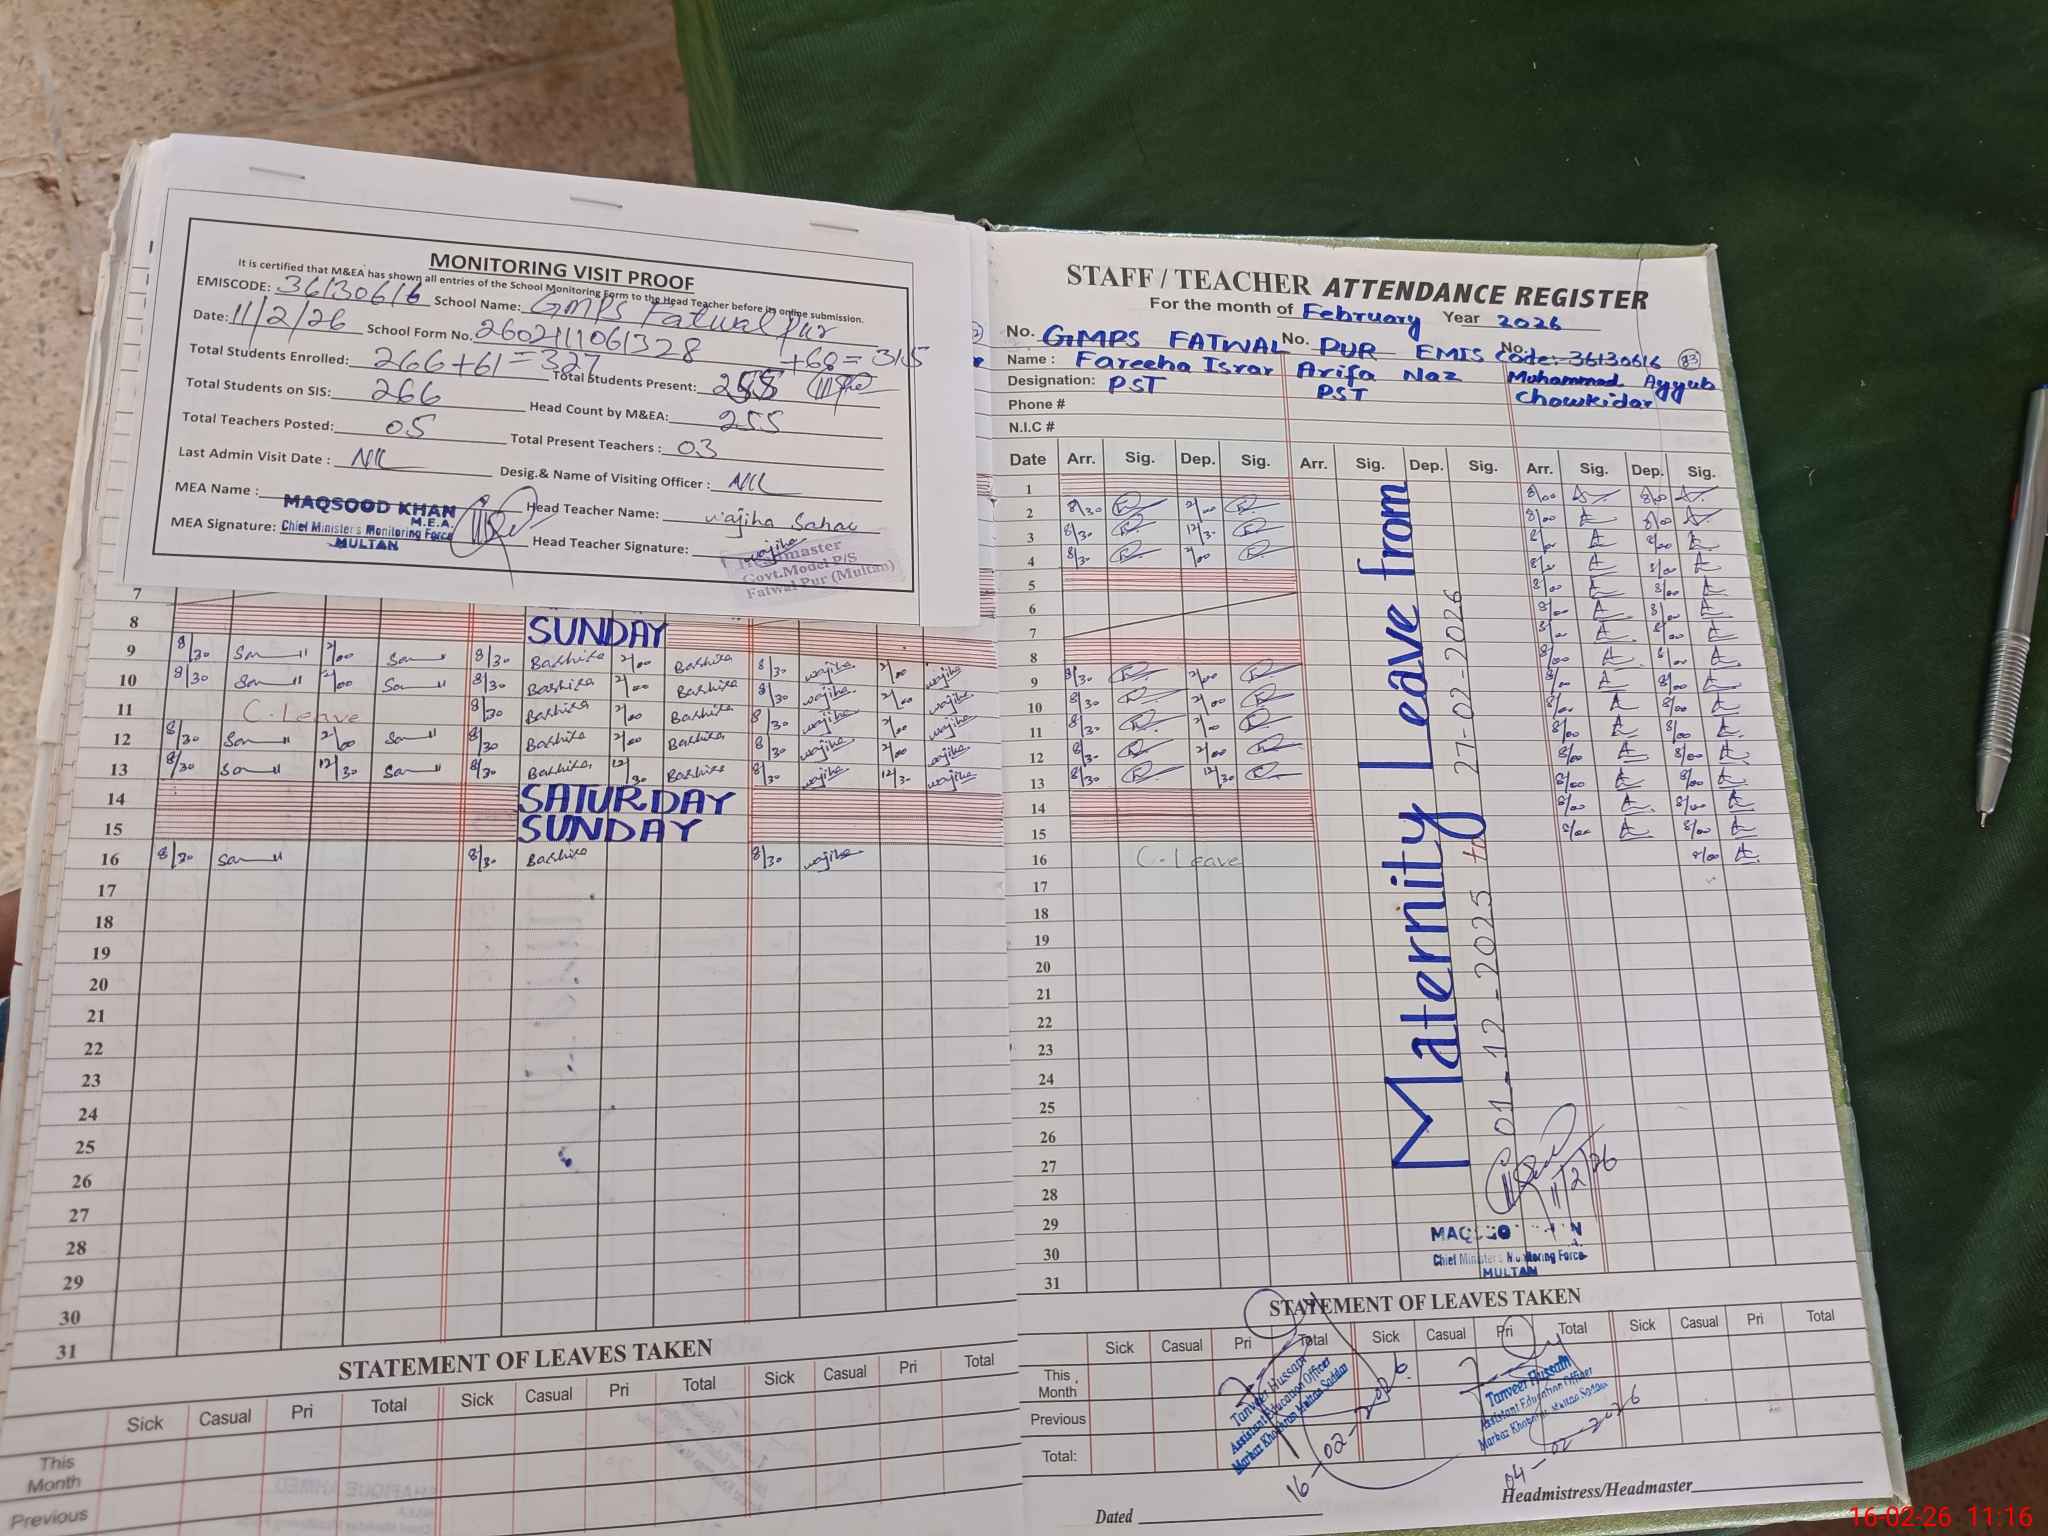 MONITORING VISIT PROOF
It is certified that M&EA has shown all entries of the School Monitoring Form to the Head Teacher before its online submission.
EMISCODE: 36130616 School Name: GMPS Fatwal Pur
Date: 11/2/26 School Form No. 2602111061328
Total Students Enrolled: 266+61=327 Total Students Present: 255 +60=315
Total Students on SIS: 266 Head Count by M&EA: 255
Total Teachers Posted: 05 Total Present Teachers: 03
Last Admin Visit Date: Nil Desig.& Name of Visiting Officer: Nil
MEA Name: MAQSOOD KHAN Head Teacher Name: Wajiha Sahar
M.E.A.
MEA Signature: Chief Minister's Monitoring Force Head Teacher Signature: Wajiha
MULTAN
Headmaster
Govt.Model P/S
Fatwal Pur (Multan)
7
8 SUNDAY
9 8/30 2/00 8/30 Bashira 2/00 Bashira 8/30 wajiha 2/00 wajiha
10 8/30 2/00 8/30 Bashira 2/00 Bashira 8/30 wajiha 2/00 wajiha
11 C-Leave 8/30 Bashira 2/00 Bashira 8/30 wajiha 2/00 wajiha
12 8/30 2/00 8/30 Bashira 2/00 Bashira 8/30 wajiha 2/00 wajiha
13 8/30 12/30 8/30 Bashira 12/30 Bashira 8/30 wajiha 12/30 wajiha
14 SATURDAY
15 SUNDAY
16 8/30 8/30 Bashira 8/30 wajiha
17
18
19
20
21
22
23
24
25
26
27
28
29
30
31
STATEMENT OF LEAVES TAKEN
Sick Casual Pri Total Sick Casual Pri Total Sick Casual Pri Total
This Month
Previous
STAFF / TEACHER ATTENDANCE REGISTER
For the month of February Year 2026
No. GMPS FATWAL No. PUR EMIS No. Code: 36130616 83
Name: Fareeha Israr Arifa Naz Muhammad Ayyub
Designation: PST PST Chowkidar
Phone #
N.I.C #
Date Arr. Sig. Dep. Sig. Arr. Sig. Dep. Sig. Arr. Sig. Dep. Sig.
1 8/00 8/00
2 8/30 2/00 8/00 8/00
3 8/30 12/30 8/00 8/00
4 8/30 2/00 8/00 8/00
5 8/00 8/00
6 8/00 8/00
7 8/00 8/00
8 8/00 8/00
9 8/30 2/00 8/00 8/00
10 8/30 2/00 8/00 8/00
11 8/30 2/00 8/00 8/00
12 8/30 2/00 8/00 8/00
13 8/30 12/30 8/00 8/00
14 8/00 8/00
15 8/00 8/00
16 C-Leave 8/00
17
18
19
20
21
22
23
24
25
26
27
28
29
30
31
Maternity Leave from
01-12-2025 to 27-02-2026
11/2/26
Chief Minister's Monitoring Force
MULTAN
STATEMENT OF LEAVES TAKEN
Sick Casual Pri Total Sick Casual Pri Total Sick Casual Pri Total
This Month
Previous
Total:
Tanveer Hussain
Assistant Education Officer
16-02-2026
Tanveer Hussain
Assistant Education Officer
04-02-2026
Dated Headmistress/Headmaster
16-02-26 11:16